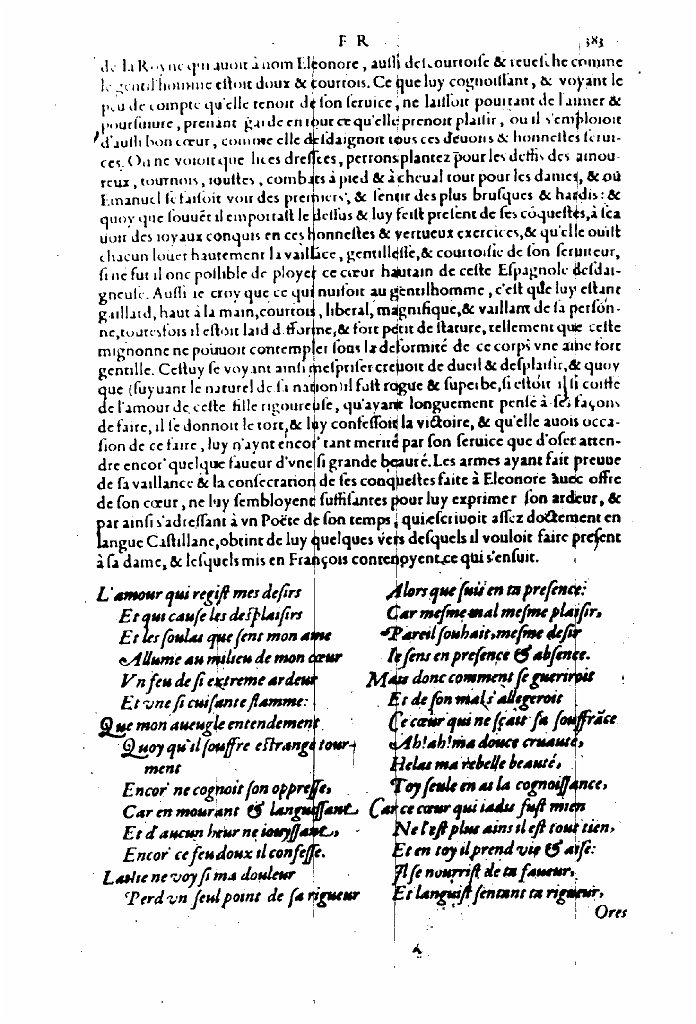 F R 383
de la Royne qui auoit à nom Eleonore, aussi descourtoise & reuesche comme
le gentil'homme estoit doux & courtois. Ce que luy cognoissant, & voyant le
peu de compte qu'elle tenoit de son seruice, ne laissoit pourtant de l'aimer &
poursuiure, prenant garde en tout ce qu'elle prenoit plaisir, ou il s'emploioit
d'aussi bon cœur, comme elle desdaignoit tous ces deuoirs & honnestes serui-
ces. On ne voioit que lices dressees, perrons plantez pour les deffis des amou-
reux, tournois, ioustes, combats à pied & à cheual tout pour les dames, & où
Emanuel se faisoit voir des premiers, & sentir des plus brusques & hardis: &
quoy que souuẽt il emportast le dessus & luy feist present de ses cõquestes, à sca
uoir des ioyaux conquis en ces honnestes & vertueux exercices, & qu'elle ouist
chacun louer hautement la vaillãce, gentillesse, & courtoisie de son seruiteur,
si ne fut il onc possible de ployer ce cœur hautain de ceste Espagnole desdai-
gneuse. Aussi ie croy que ce qui nuisoit au gentilhomme, c'est que luy estant
gaillard, haut à la main, courtois, liberal, magnifique, & vaillant de sa person-
ne, toutesfois il estoit laid difforme, & fort petit de stature, tellement que ceste
mignonne ne pouuoit contempler sous la deformité de ce corps vne ame fort
gentille. Cestuy se voyant ainsi mespriser creuoit de dueil & desplaisir, & quoy
que (suyuant le naturel de sa nation) il fust rogue & superbe, si estoit il si coiffé
de l'amour de ceste fille rigoureuse, qu'ayant longuement pensé à ses façons
de faire, il se donnoit le tort, & luy confessoit la victoire, & qu'elle auois occa-
sion de ce faire, luy n'aynt encor' tant merité par son seruice que d'oser atten-
dre encor' quelque faueur d'vne si grande beauté. Les armes ayant fait preuue
de sa vaillance & la consecration de ses conquestes faite à Eleonore auec offre
de son cœur, ne luy sembloyent suffisantes pour luy exprimer son ardeur, &
par ainsi s'adressant à vn Poëte de son temps, qui escriuoit assez doctement en
langue Castillane, obtint de luy quelques vers desquels il vouloit faire present
à sa dame, & lesquels mis en François contenoyent ce qui s'ensuit.
L'amour qui regist mes desirs
Et qui cause les desplaisirs
Et les soulas que sent mon ame
Allume au milieu de mon cœur
Vn feu de si extreme ardeur
Et vne si cuisante flamme:
Que mon aueugle entendement
Quoy qu'il souffre estrange tour-
ment
Encor' ne cognoit son oppresse,
Car en mourant & languissant
Et d'aucun heur ne iouyssant,
Encor' ce feu doux il confesse.
Lasie ne voy si ma douleur
Perd vn seul point de sa rigueur
Alors que suis en ta presence:
Car mesme mal mesme plaisir,
Pareil souhait, mesme desir
Ie sens en presence & absence.
Mais donc comment se gueriroit
Et de son mal s'allegeroit
Ce cœur qui ne sçait sa souffrãce
Ah! ah! ma douce cruauté,
Helas ma rebelle beauté,
Toy seule en as la cognoissance,
Car ce cœur qui iadis fust mien
Ne l'est plus ains il est tout tien,
Et en toy il prend vie & aise:
Il se nourrist de ta faueur,
Et languist sentant ta rigueur,
Ores